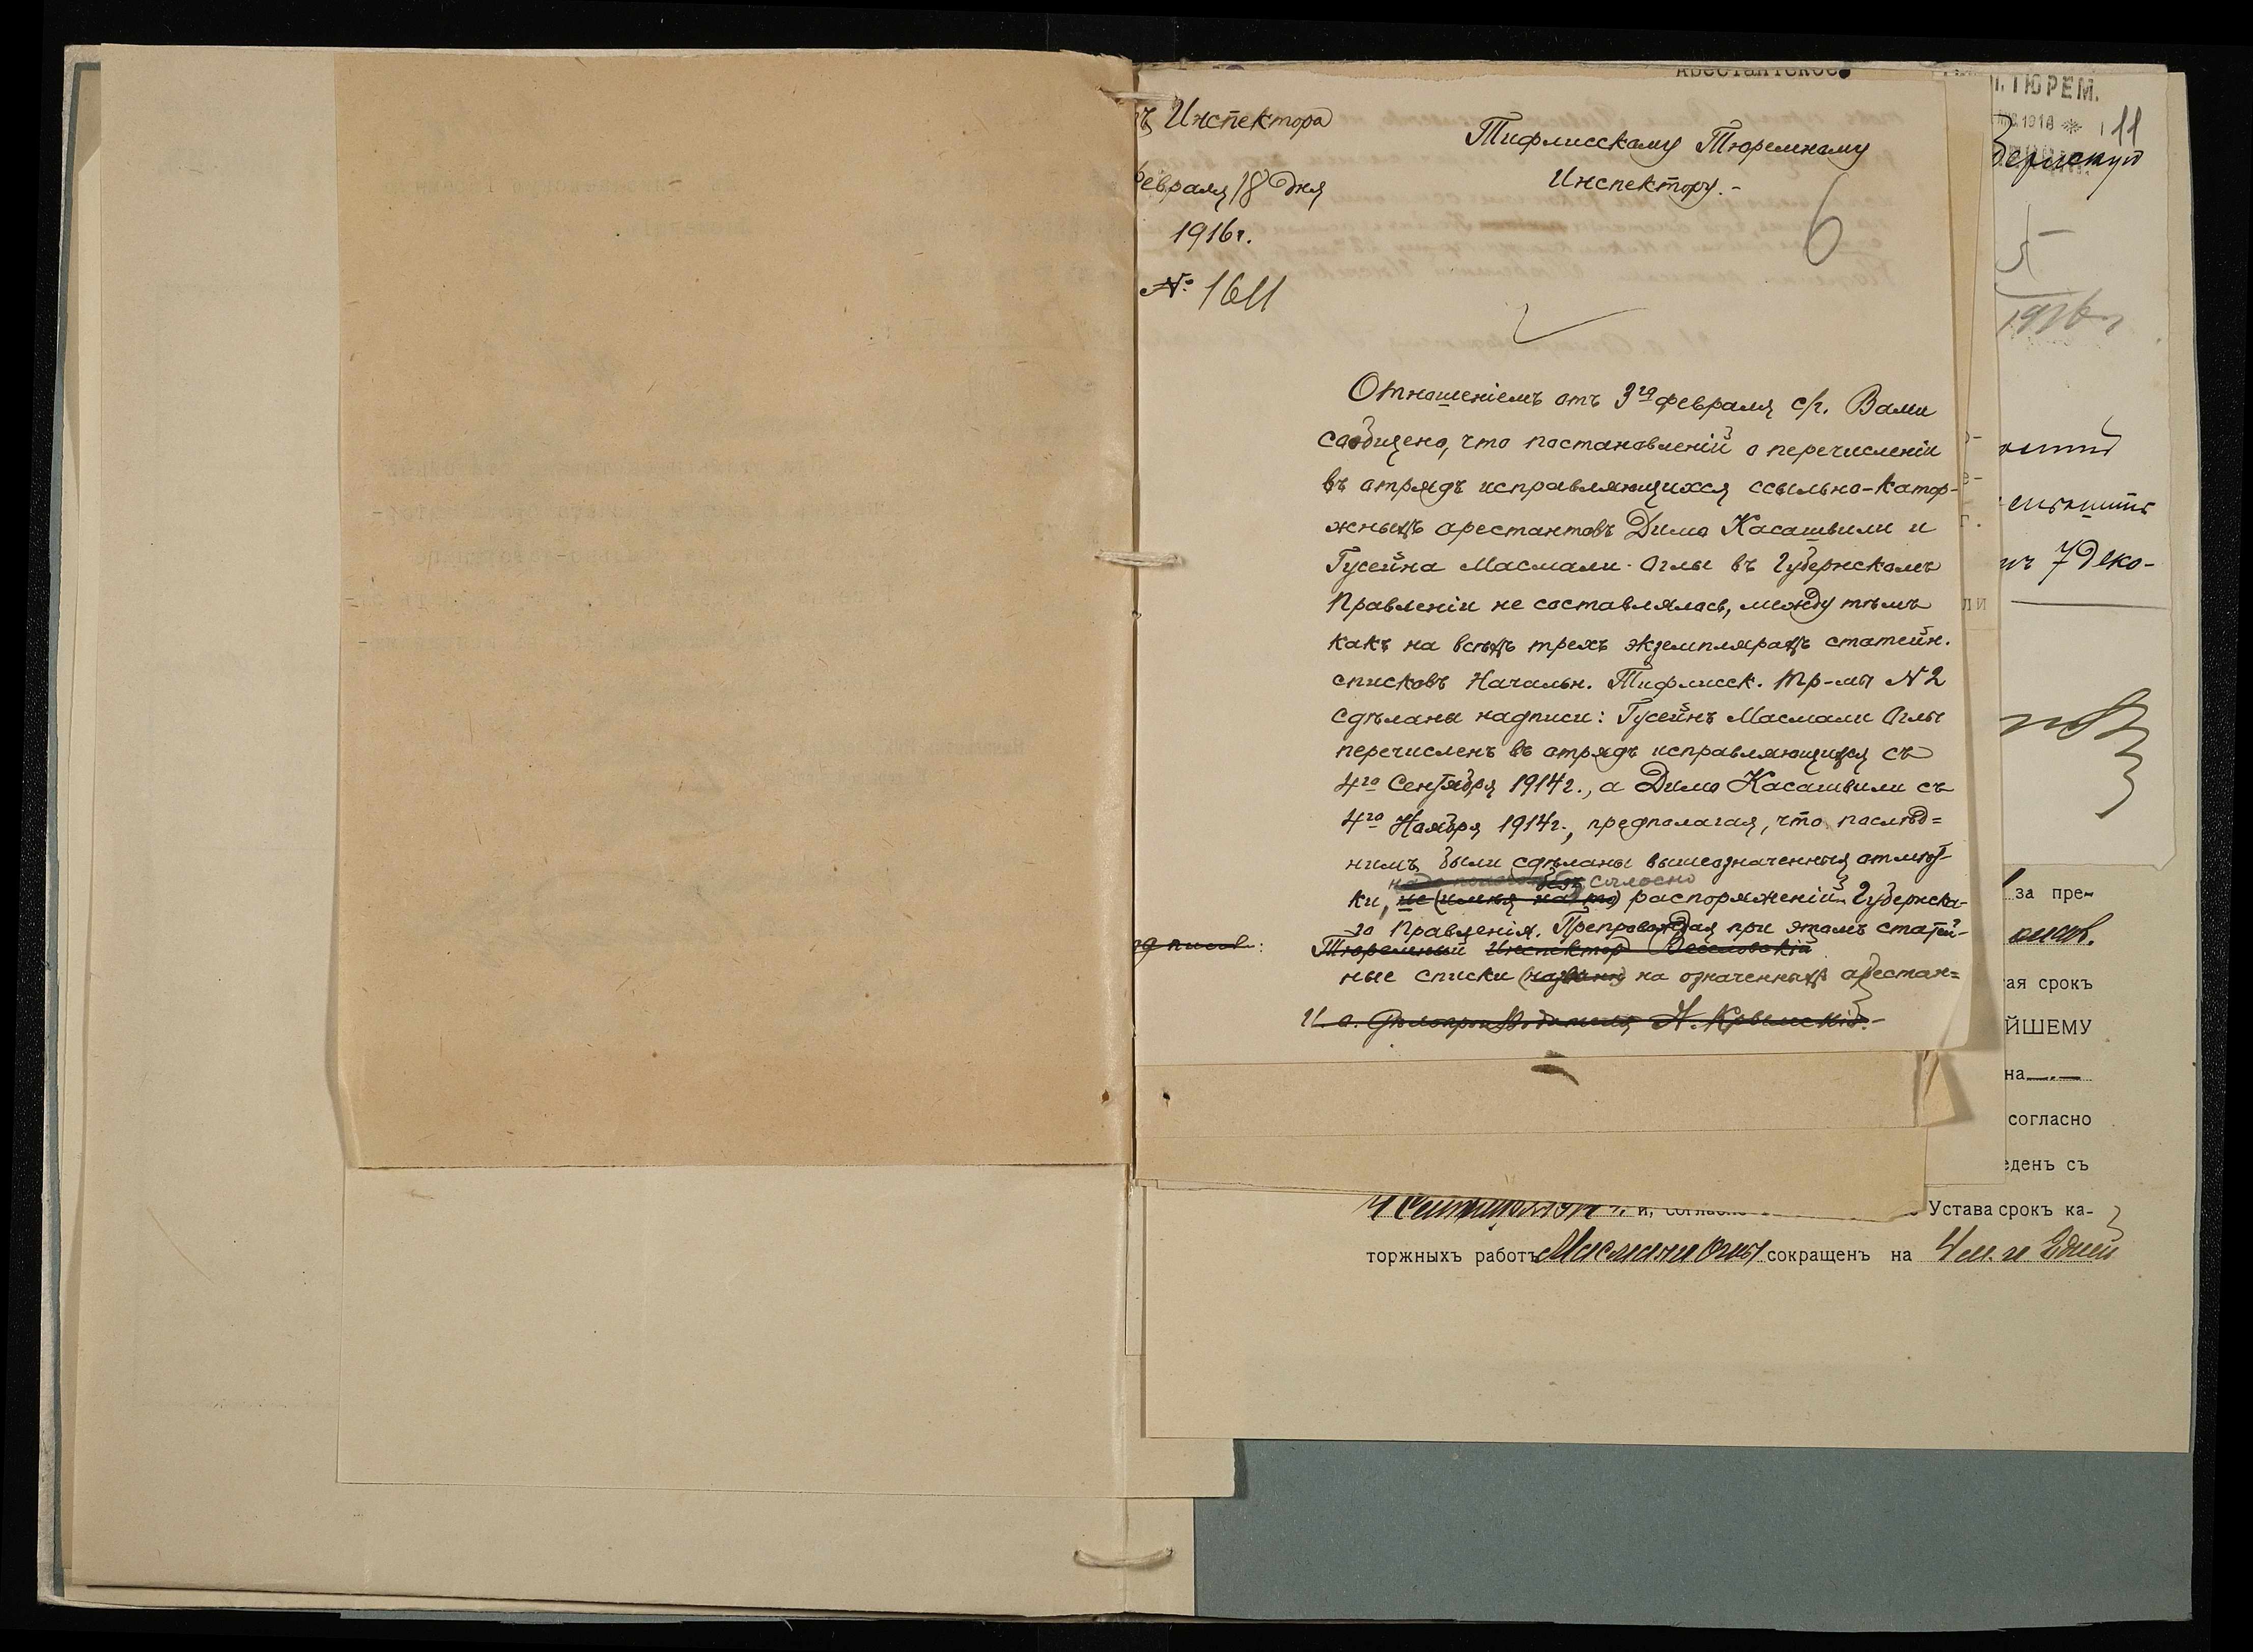 Арестантское.
ъ Инспектора
Февраля 18 дня
1916г.
№ 1611
Тифлисскому Тюремному
Инспектору.-
6
Отношеніемъ отъ 3го февраля с/г. Вами
сообщено, что постановленій о перечисленіи
въ отрядъ исправляющихся ссыльно-катор-
жныхъ арестантовъ Димо Касашвили и
Гусейна Масмали-Оглы въ Губернскомъ
Правленіи не составлялось, между тѣмъ
какъ на всѣхъ трехъ экземплярахъ статейн.
списковъ Начальн. Тифлисск. тр-мы N 2
сдѣланы надписи: Гусейнъ Масмали Оглы
перечисленъ въ отрядъ исправляющихся съ
4го Сентября 1914г., а Димо Касашвили съ
4го Ноября 1914г., предполагая, что послѣд=
нимъ были сдѣланы вышеозначенныя отмѣт-
согласно
ки, не (имѣя на то) распоряженій Губернска-
го Правленія. Препровождая при этомъ статей-
Тюремный Инспекторъ
ные списки на означенныхъ арестан=
И. о. Дѣлопроизводителя
п. ТЮРЕМ.
1916
11
5
1916г
7 Деко-
ли
за пре-
ая срокъ
ЙШЕМУ
на
согласно
еденъ съ
и, согласно Устава срокъ ка-
торжныхъ работъ Масмали Оглы сокращенъ на 4 м. и 2 дней